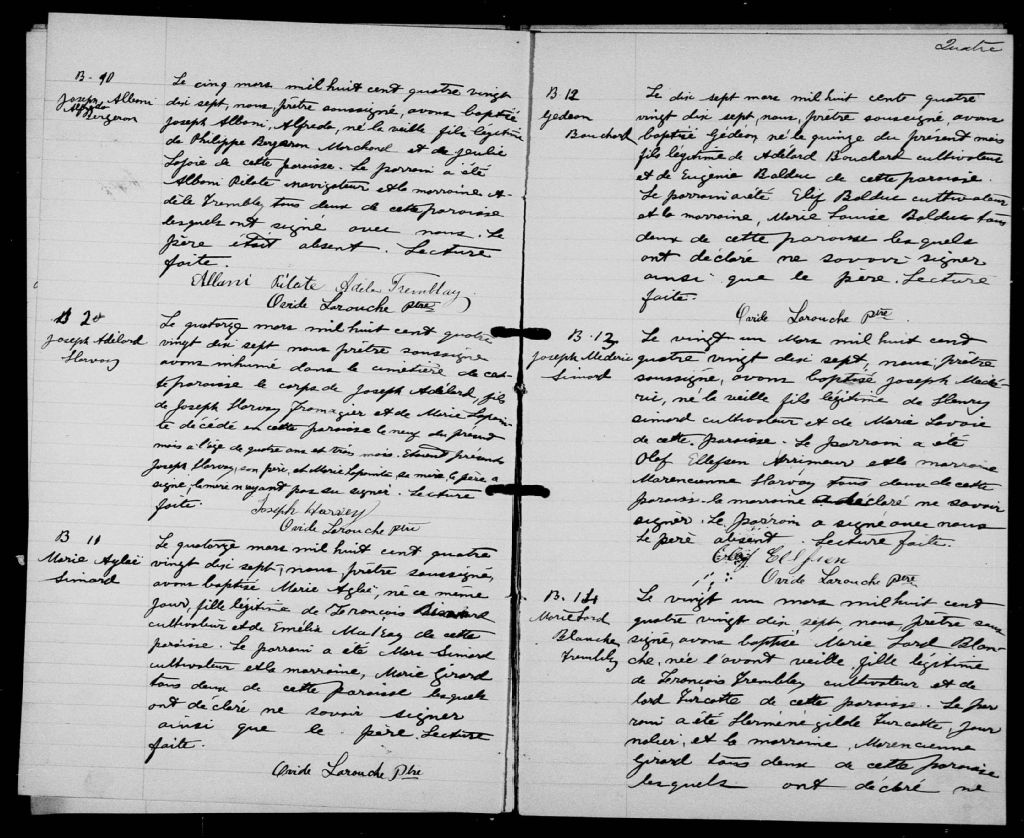 B-10
Joseph Alboni
Alfreda
Bergeron
Le cinq mars mil huit cent quatre vingt
dix sept, nous, prêtre soussigné, avons baptisé
Joseph Alboni, Alfreda, né la veille fils légitime
de Philippe Bergeron Marchand et de Julie
Lajoie de cette paroisse. Le parrain a été
Alboni Pilote navigateur et la marraine A-
dèle Tremblay tous deux de cette paroisse
lesquels ont signé avec nous. Le
père était absent. Lecture
faite.
Alboni Pilote Adèle Tremblay
Ovide Larouche Ptre
Joseph Adélard
Harvay
Le quatorze mars mil huit cent quatre
vingt dix sept nous prêtre soussigné
avons inhumé dans le cimetière de cet-
te paroisse le corps de Joseph Adélard, fils
de Joseph Harvay Fromagier et de Marie Lapoin-
te décédé en cette paroisse le neuf du présent
mois a l'âge de quatre ans et trois mois. Etaient présents
Joseph Harvay, son père, et Marie Lapointe sa mère, le père a
signé, la mère n'ayant pas su signer. Lecture
faite.
Joseph Harvey
Ovide Larouche ptre
B 11
Marie Aglaé
Simard
Le quatorze mars mil huit cent quatre
vingt dix sept, nous, prêtre soussigné,
avons baptisé Marie Aglaé, née ce même
jour, fille légitime de François Simard
cultivateur et de Emélie de cette
paroisse. Le parrain a été Marc Simard
cultivateur et la marraine, Marie Girard
tous deux de cette paroisse lesquels
ont déclaré ne savoir signer
ainsi que le père. Lecture
faite.
Ovide Larouche Ptre
Quatre
B 12
Gédéon
Bouchard
Le dix sept mars mil huit cents quatre
vingt dix sept, nous, prêtre soussigné, avons
baptisé Gédéon, né le quinze du présent mois
fils légitime de Adélard Bouchard cultivateur
et de Eugénie Bolduc de cette paroisse.
Le parrain a été Bolduc cultivateur
et la marraine, Marie Louise Bolduc tous
deux de cette paroisse lesquels
ont déclaré ne savoir signer
ainsi que le père. Lecture
faite.
Ovide Larouche ptre.
B. 13
Joseph Médéric
Simard
Le vingt un Mars mil huit cent
quatre vingt dix sept, nous, prêtre
soussigné, avons baptisé Joseph Médé-
ric, né la veille fils légitime de Henry
Simard cultivateur et de Marie Lavoie
de cette paroisse. Le parrain a été
Olaf Ellefsen Arrimeur et la marraine
Marencienne Harvay tous deux de cette
paroisse. la marraine a déclaré ne savoir
signer. Le parrain a signé avec nous
Le père absent. Lecture faite.
Ovide Larouche Ptre
B. 14
Marie Lord
Blanche
Tremblay
Le vingt un mars mil huit cent
quatre vingt dix sept, nous prêtre sous
signé, avons baptisé Marie Lord Blan-
che, née l'avant veille, fille légitime
de François Tremblay cultivateur et de
Turcotte de cette paroisse. Le par
rain a été Herménégilde Turcotte, jour
nalier, et la marraine, Marencienne
Girard tous deux de cette paroisse
lesquels ont déclaré ne